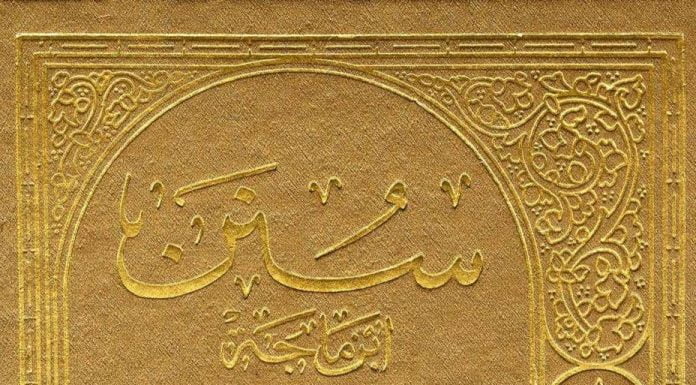 سُنَن
ابن ماجة